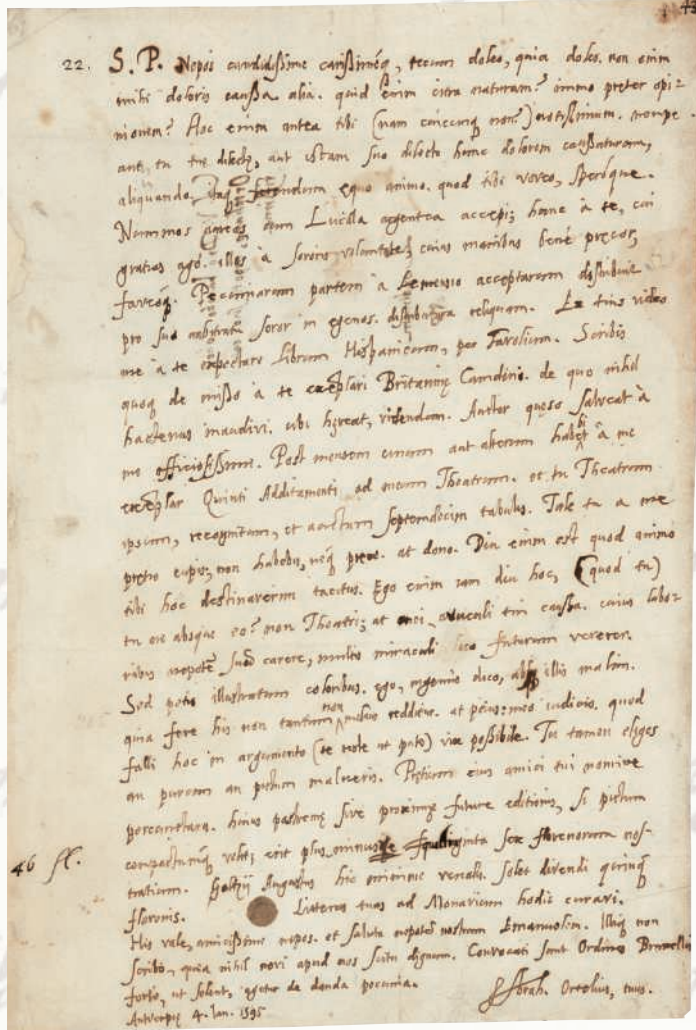 43
22. S. P. Nepos candidissime carissimeq, tecum doleo, quia doles. non enim
mihi doloris caussa alia. quid enim citra naturam? immo preter opi-
nionem? Hoc enim antea tibi (nam cuicunq non?) notissimum. nempe
aut te tue dilecte, aut istam suo dilecto hunc dolorem caussaturam,
aliquando. Itaq ferendum equo animo. quod tibi voveo, speroque.
Nummos aureos cum Lucilla argentea accepi; hanc à te, cui
gratias ago. illos à sororis voluntate; cuius manibus bene precor,
faveoq. Pecuniarum partem à Lemensio acceptarum distribuit
pro suo arbitratu soror in egenos. distributura reliquam. Ex tuis video
me à te expectare Librum Hispanicum, per Farolium. Scribis
quoq de misso à te exemplari Britannie Camdeni. de quo nihil
hactenus inaudivi. ubi hereat, videndum. Auctor queso salveat à
me officiosissime. Post mensem unum aut alterum habebit à me
exemplar Quinti Additamenti ad meum Theatrum. et tu Theatrum
ipsum, recognitum, et auctum septemdecim tabulis. Tale tu a me
pretio cupis; non habebis, neq prece. at dono. Diu enim est quod animo
tibi hoc destinaverim tacitus. Ego enim iam diu hoc, (quod tu)
tu ne absque eo? non Theatri; at mei avunculi tui caussa. cuius labo-
ribus nepotem suum carere, multis miraculi loco futurum vererer.
Sed petis illustratum coloribus. ego, ingenue dico, absq illis malim.
quia fere his non tantum non melius redditur. at peius: meo iudicio. quod
falli hoc in argumento (te teste ut puto) vix possibile. Tu tamen eliges
an purum an pictum malueris. Pretium eius amici tui nomine
percunctaris. huius postreme sive proxime future editionis, si pictum
compactumq velit; erit plus minusve quadraginta sex florenorum nos-
46 fl.
tratium. Goltzii Augustus hic minime venalis. Solet divendi quinq
florenis. Literas tuas ad Monavium hodie curavi.
His vale, amicissime nepos. et saluta nepotem nostrum Emanuelem. Illiq non
scribo, quia nihil novi apud nos scitu dignum. Convocati sunt Ordines Bruxellis
forte, ut solent, agetur de danda pecunia.
Antverpie 4. Ian. 1595
Abrah. Ortelius, tuus.